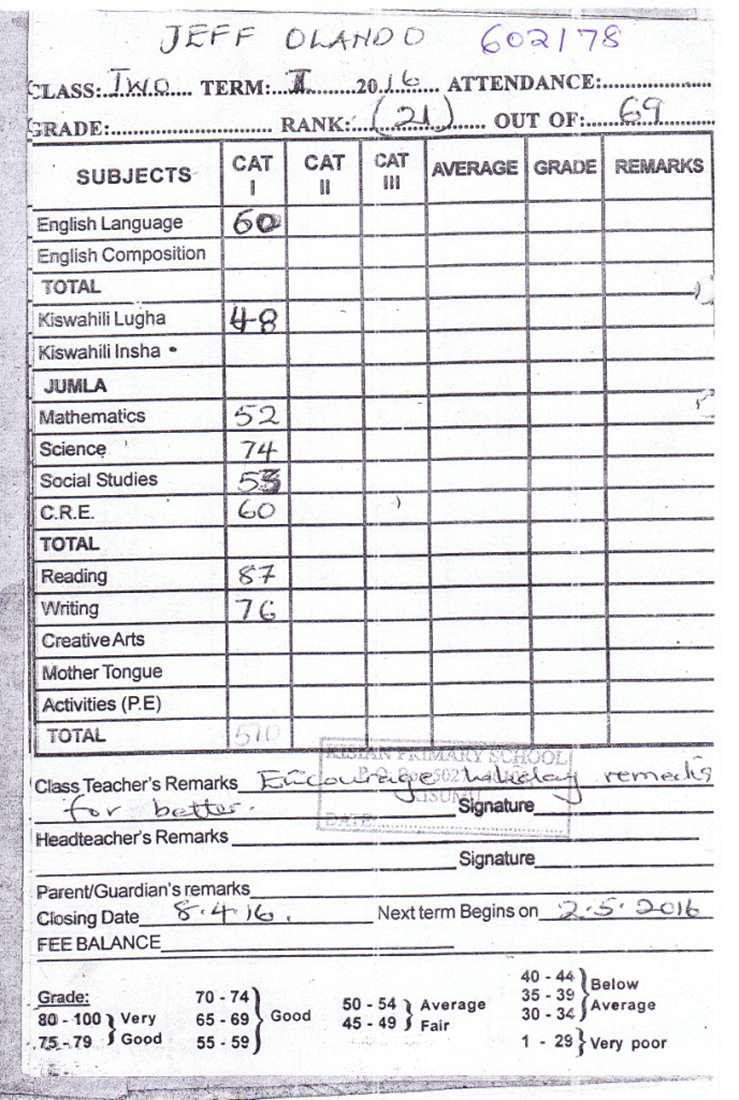 JEFF OLANDO 602178
CLASS: TWO TERM: I 2016 ATTENDANCE:
GRADE: RANK: (21) OUT OF: 69
SUBJECTS CAT I CAT II CAT III AVERAGE GRADE REMARKS
English Language 60
English Composition
TOTAL
Kiswahili Lugha 48
Kiswahili Insha
JUMLA
Mathematics 52
Science 74
Social Studies 53
C.R.E. 60
TOTAL
Reading 87
Writing 76
Creative Arts
Mother Tongue
Activities (P.E)
TOTAL 510
KISIAN PRIMARY SCHOOL
Class Teacher's Remarks Encourage holiday remedis
KISUMU
for better. Signature
DATE:
Headteacher's Remarks
Signature
Parent/Guardian's remarks
Closing Date 8.4.16. Next term Begins on 2.5.2016
FEE BALANCE
Grade:
80 - 100 75 - 79 Very Good
70 - 74 65 - 69 55 - 59 Good
50 - 54 45 - 49 Average Fair
40 - 44 35 - 39 30 - 34 Below Average
1 - 29 Very poor